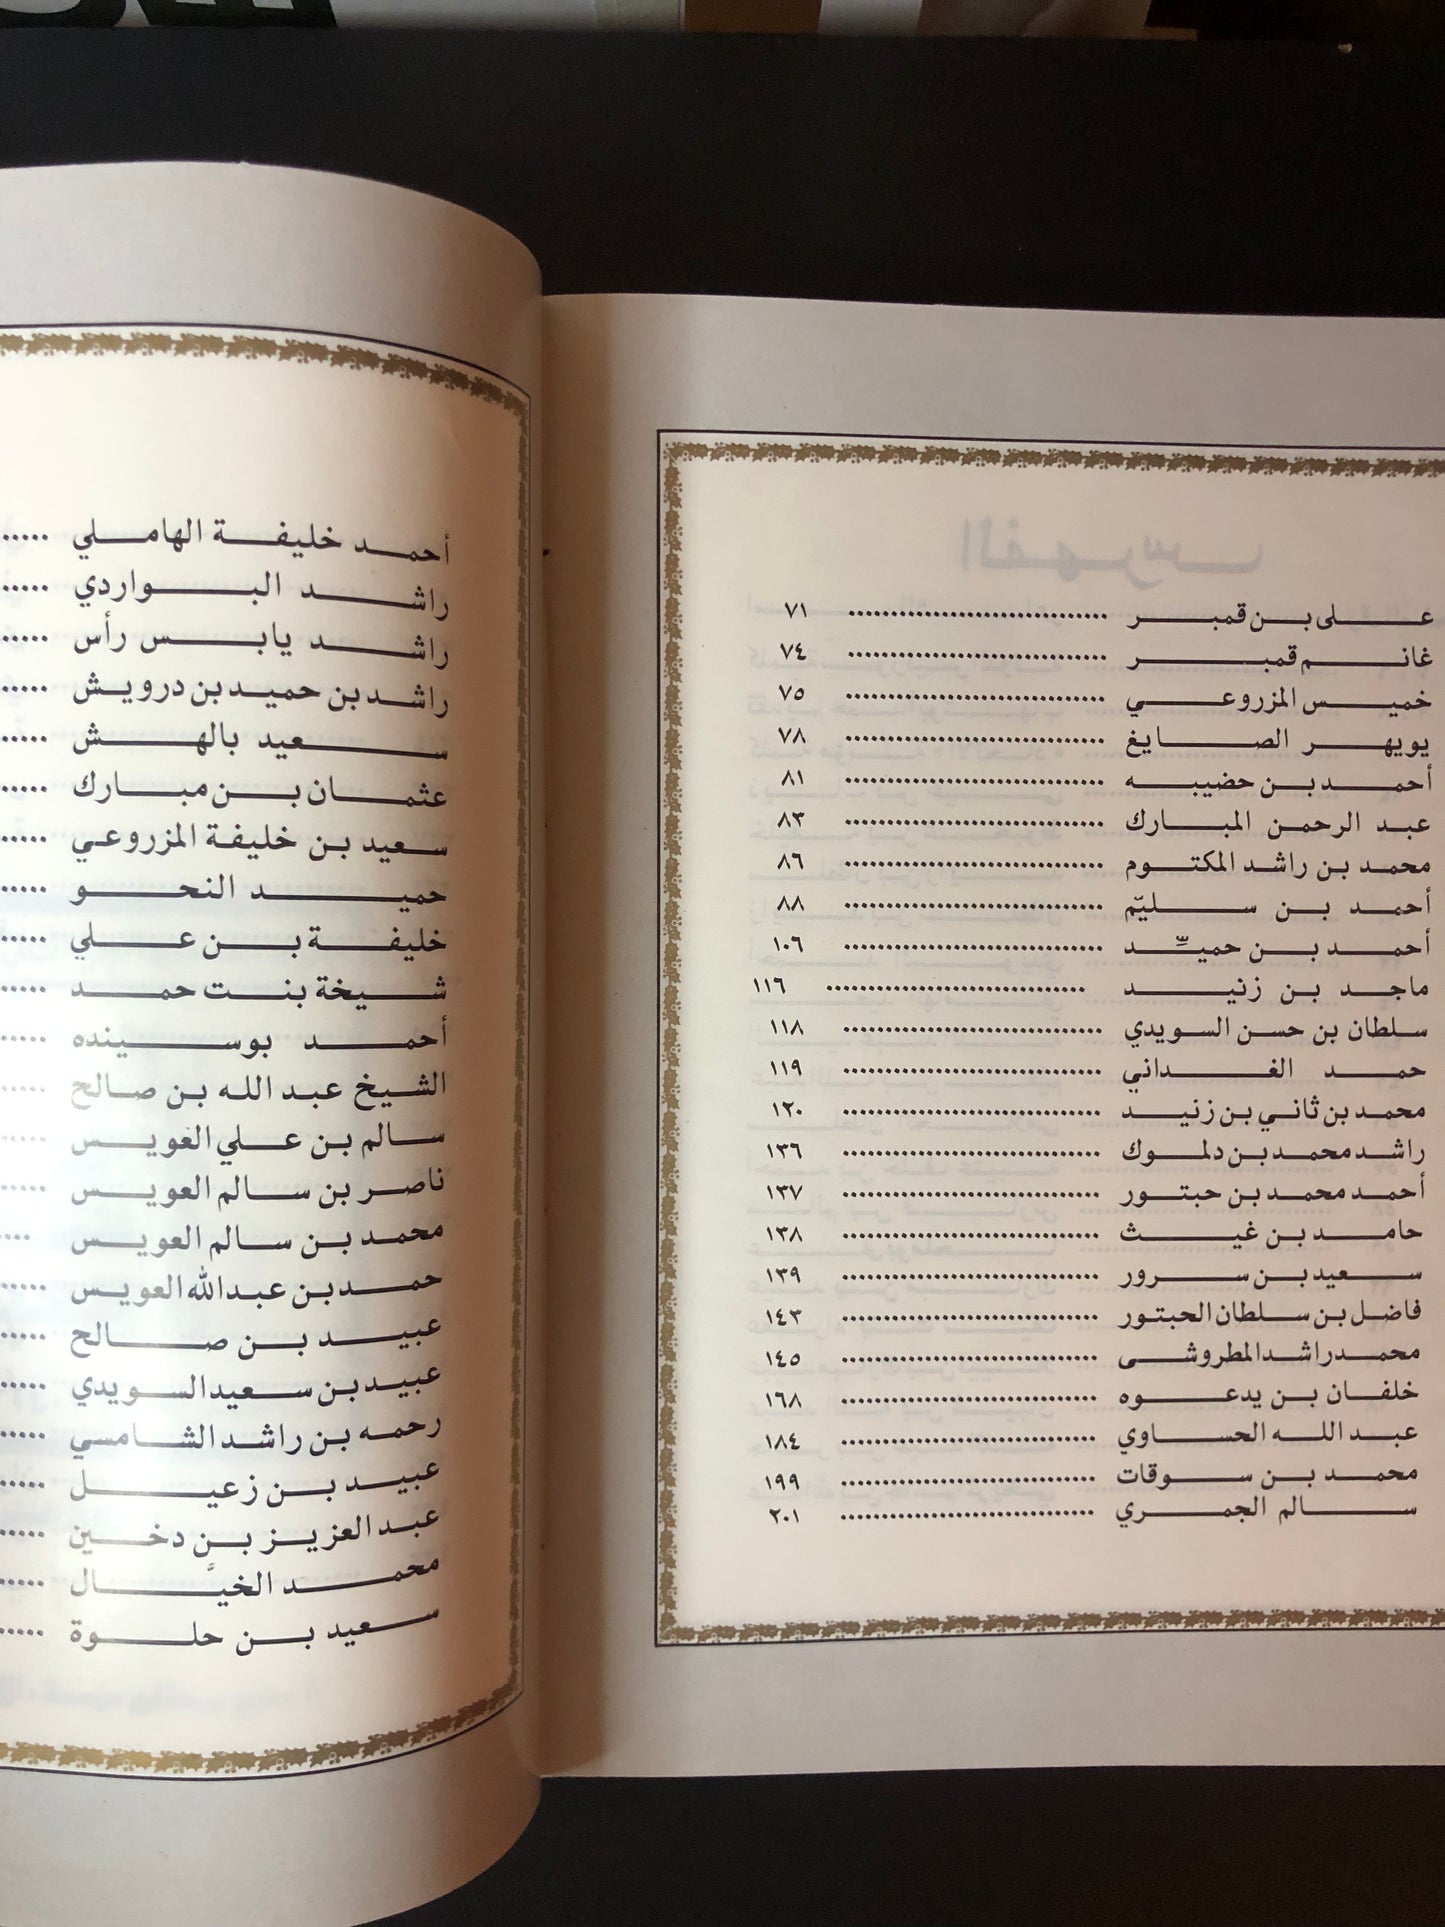 على بن قمبر ................ ٧١
غانم قمبر ................ ٧٤
خميس المزروعي ................ ٧٥
يويهر الصايغ ................ ٧٨
أحمد بن حضيبه ................ ٨١
عبد الرحمن المبارك ................ ٨٣
محمد بن راشد المكتوم ................ ٨٦
أحمد بن سليّم ................ ٨٨
أحمد بن حميد ................ ١٠٦
ماجد بن زنيد ................ ١١٦
سلطان بن حسن السويدي ................ ١١٨
حمد الغداني ................ ١١٩
محمد بن ثاني بن زنيد ................ ١٢٠
راشد محمد بن دلموك ................ ١٣٦
أحمد محمد بن حبتور ................ ١٣٧
حامد بن غيث ................ ١٣٨
سعيد بن سرور ................ ١٣٩
فاضل بن سلطان الحبتور ................ ١٤٣
محمد راشد المطروشى ................ ١٤٥
خلفان بن يدعوه ................ ١٦٨
عبد الله الحساوي ................ ١٨٤
محمد بن سوقات ................ ١٩٩
سالم الجمري ................ ٢٠١
أحمد خليفة الهاملي .....
راشد البواردي .....
راشد يابس رأس .....
راشد بن حميد بن درويش .....
سعيد بالهش .....
عثمان بن مبارك .....
سعيد بن خليفة المزروعي .....
حميد النحو .....
خليفة بن علي .....
شيخة بنت حمد .....
أحمد بوسينده .....
الشيخ عبد الله بن صالح .....
سالم بن علي العويس .....
ناصر بن سالم العويس .....
محمد بن سالم العويس .....
حمد بن عبدالله العويس .....
عبيد بن صالح .....
عبيد بن سعيد السويدي .....
رحمه بن راشد الشامسي .....
عبيد بن زعيل .....
عبد العزيز بن دخين .....
محمد الخيَّال .....
سعيد بن حلوة .....